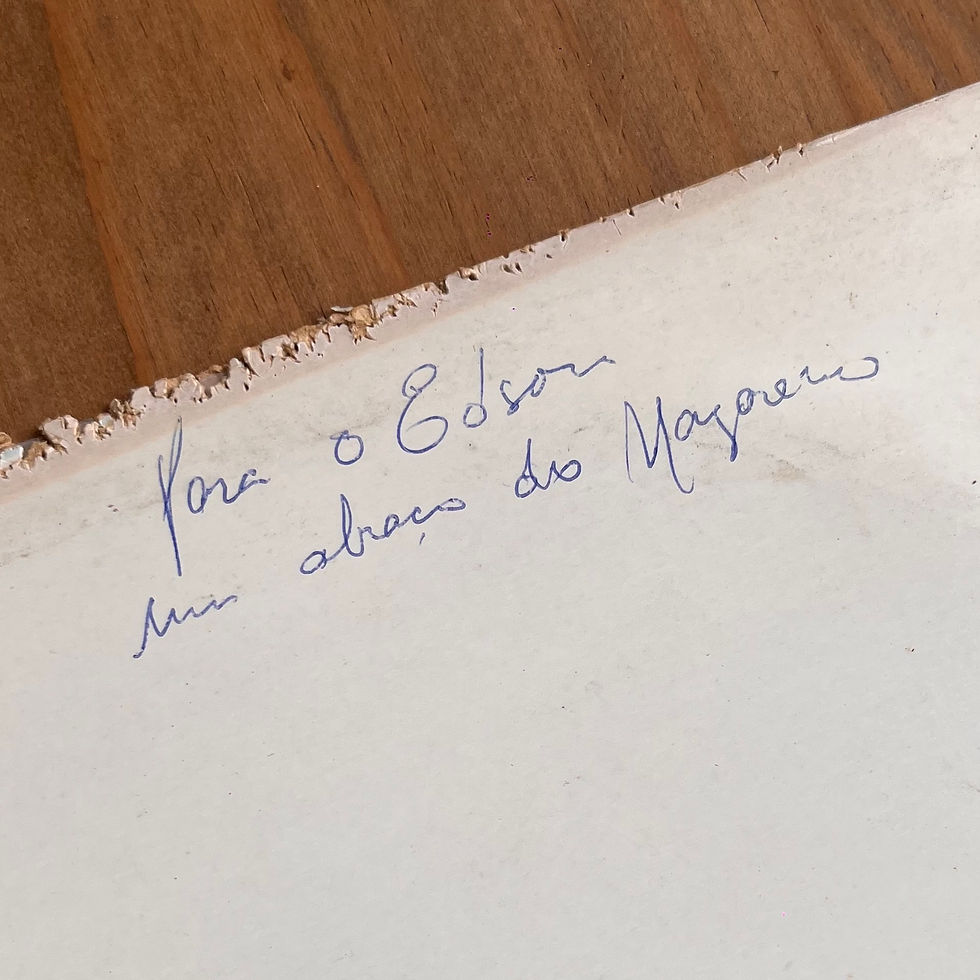 Para o Edson
um abraço do Magareno